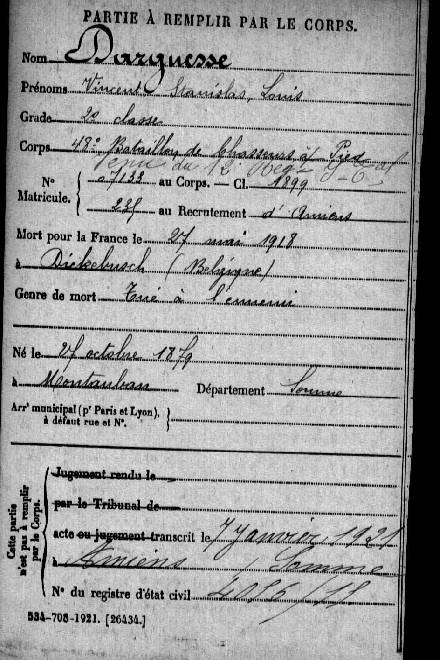 PARTIE À REMPLIR PAR LE CORPS.
Nom Darguesse
Prénoms Vincent Stanislas, Louis
Grade 2e classe
Corps 48e Bataillon de Chasseurs à Pied
Venu du 12 Reg
N° Matricule. 7133 au Corps. — Cl. 1899
au Recrutement d'Amiens
Mort pour la France le 27 mai 1918
à Dickebusch (Belgique)
Genre de mort Tué à l'ennemi
Né le octobre 1879
à Montauban Département Somme
Arrt municipal (pr Paris et Lyon), à défaut rue et N°.
Cette partie n'est pas à remplir par le Corps.
Jugement rendu le
par le Tribunal de
acte ou jugement transcrit le 7 janvier 1921
à Amiens Somme
N° du registre d'état civil
534-708-1921. [26434.]